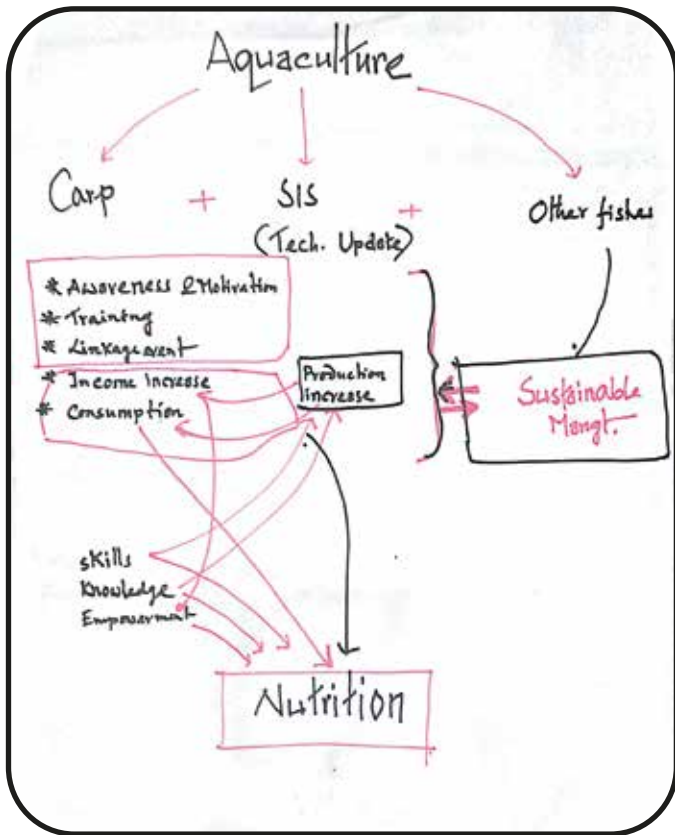 Aquaculture
Carp + SIS + Other fishes
(Tech. Update)
* Awareness & Motivation
* Training
* Linkage event
* Income Increase
* Consumption
Production
increase
Sustainable
Mengt.
Skills
Knowledge
Empowerment
Nutrition